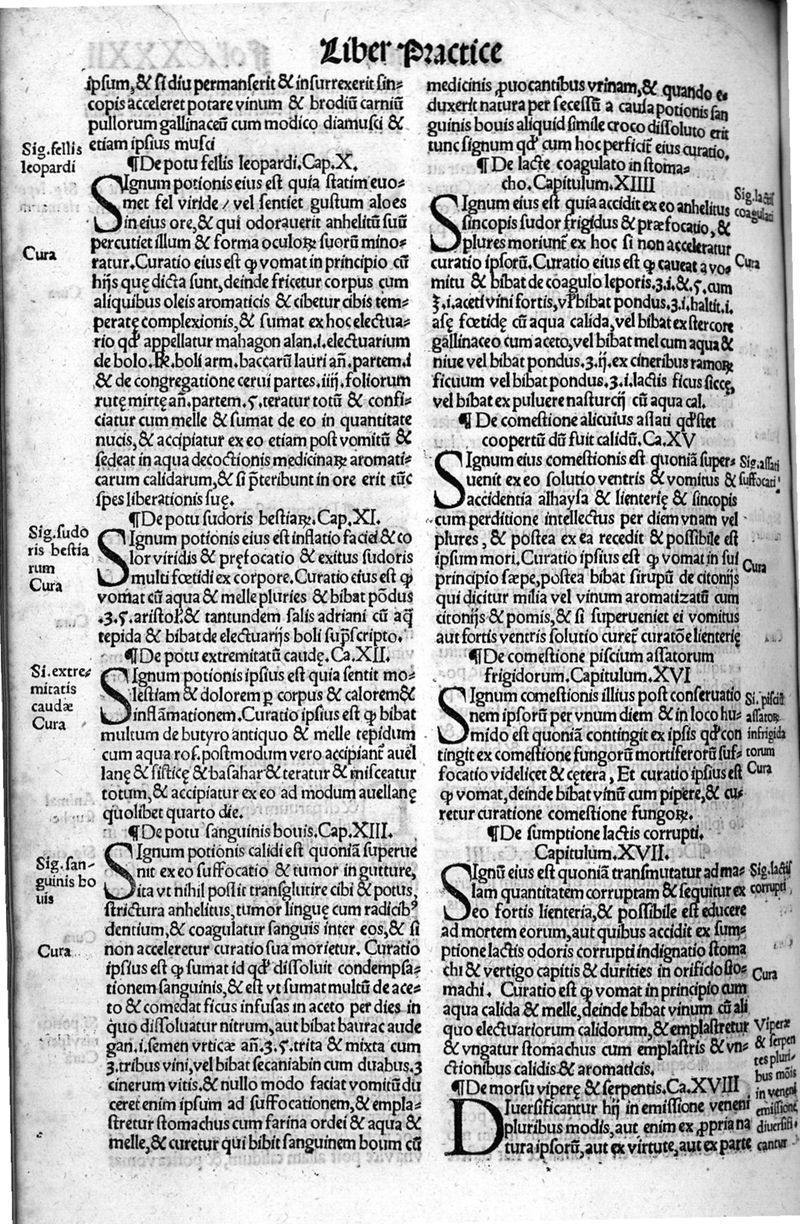 Liber Practice
ipsum,& si diu permanserit & insurrexerit sin⸗
copis acceleret potare vinum & brodiū carniū
pullorum gallinaceū cum modico diamusci &
etiam ipsius musci
Sig.fellis
leopardi
¶De potu fellis leopardi.Cap.X.
SIgnum potionis eius est quia statim euo⸗
met fel viride/ vel sentiet gustum aloes
in eius ore,& qui odorauerit anhelitū suū
percutiet illum & forma oculoꝝ suorū mino⸗
Cura
ratur.Curatio eius est ꝙ vomat in principio cū
hijs quę dicta sunt,deinde fricetur corpus cum
aliquibus oleis aromaticis & cibetur cibis tem⸗
peratę complexionis,& sumat ex hoc electua⸗
rio qđ appellatur mahagon alan.i.electuarium
de bolo.℞.boli arm.baccarū lauri añ.partem.i
& de congregatione cerui partes.iiij.foliorum
rutę mirtę añ.partem.ʒ.teratur totū & confi⸗
ciatur cum melle & sumat de eo in quantitate
nucis,& accipiatur ex eo etiam post vomitū &
sedeat in aqua decoctionis medicinaꝝ aromati⸗
carum calidarum,& si p̄teribunt in ore erit tūc
spes liberationis suę.
¶De potu sudoris bestiaꝝ.Cap.XI.
Sig.sudo
ris bestia
rum
Cura
SIgnum potionis eius est inflatio faciei & co
lor viridis & pręfocatio & exitus sudoris
multi fœtidi ex corpore.Curatio eius est ꝙ
vomat cū aqua & melle pluries & bibat põdus
.3.ʒ.aristol.& tantundem salis adriani cū aq̃
tepida & bibat de electuarijs boli sup̄scripto.
¶De potu extremitatū caudę.Ca.XII.
Si.extre⸗
mitatis
caudæ
Cura
SIgnum potionis ipsius est quia sentit mo⸗
lestiam & dolorem ꝑ corpus & calorem &
inflāmationem.Curatio ipsius est ꝙ bibat
multum de butyro antiquo & melle tepidum
cum aqua ros.postmodum vero accipiant̄ auel
lanę & fisticę & basahar & teratur & misceatur
totum,& accipiatur ex eo ad modum auellanę
quolibet quarto die.
¶De potu sanguinis bouis.Cap.XIII.
Sig.san⸗
guinis bo
uis
SIgnum potionis calidi est quoniā superue
nit ex eo suffocatio & tumor in gutture,
ita vt nihil possit transglutire cibi & potus,
strictura anhelitus,tumor linguę cum radicibꝰ
dentium,& coagulatur sanguis inter eos,& si
Cura
non acceleretur curatio sua morietur. Curatio
ipsius est ꝙ sumat id qđ dissoluit condempsa⸗
tionem sanguinis,& est vt sumat multū de ace⸗
to & comedat ficus infusas in aceto per dies in
quo dissoluatur nitrum,aut bibat baurac aude
gan.i.semen vrticæ añ.3.ʒ.trita & mixta cum
3.tribus vini,vel bibat secaniabin cum duabus.3
cinerum vitis.& nullo modo faciat vomitū du
ceret enim ipsum ad suffocationem,& empla⸗
stretur stomachus cum farina ordei & aqua &
melle,& curetur qui bibit sanguinem boum cū
medicinis ꝓuocantibus vrinam,& quando e⸗
duxerit natura per secessū a causa potionis san
guinis bouis aliquid simile croco dissoluto erit
tunc signum qđ cum hoc perficit̄ eius curatio.
¶De lacte coagulato in stoma⸗
cho.Capitulum.XIIII
Sig.lactis
coagulati
SIgnum eius est quia accidit ex eo anhelitus
sincopis sudor frigidus & præfocatio,&
plures moriunt̄ ex hoc si non acceleratur
Cura
curatio ipsorū.Curatio eius est ꝙ caueat a vo⸗
mitu & bibat de coagulo leporis.3.i.&.ʒ.cum
℥.i.aceti vini fortis,vl̄ bibat pondus.3.i.haltit.i.
asę fœtidę cū aqua calida,vel bibat ex stercore
gallinaceo cum aceto,vel bibat mel cum aqua &
niue vel bibat pondus.3.ij.ex cineribus ramoꝝ
ficuum vel bibat pondus.3.i.lactis ficus siccę,
vel bibat ex puluere nasturcij cū aqua cal.
¶De comestione alicuius assati qđ stet
coopertū dū fuit calidū.Ca.XV
Sig.assati
suffocati
SIgnum eius comestionis est quoniā super⸗
uenit ex eo solutio ventris & vomitus &
accidentia alhaysa & lienterię & sincopis
cum perditione intellectus per diem vnam vel
plures, & postea ex ea recedit & possibile est
Cura
ipsum mori.Curatio ipsius est ꝙ vomat in sui
principio sæpe,postea bibat sirupū de citonijs
qui dicitur milia vel vinum aromatizatū cum
citonijs & pomis,& si superueniet ei vomitus
aut fortis ventris solutio curet̄ curatōe lienterię
¶De comestione piscium assatorum
frigidorum.Capitulum.XVI
Si.pisciū
assatoꝝ
infrigida
torum
Cura
SIgnum comestionis illius post conseruatio
nem ipsorū per vnum diem & in loco hu⸗
mido est quoniā contingit ex ipsis qđ con
tingit ex comestione fungorū mortiferorū suf⸗
focatio videlicet & cętera, Et curatio ipsius est
ꝙ vomat,deinde bibat vinū cum pipere,& cu⸗
retur curatione comestione fungoꝝ.
¶De sumptione lactis corrupti.
Capitulum.XVII.
Sig.lactis
corrupti
SIgnū est quoniā transmutatur ad ma⸗
lam quantitatem corruptam & sequitur ex
eo fortis lienteria,& possibile est educere
ad mortem eorum,aut quibus accidit ex sum⸗
ptione lactis odoris corrupti indignatio stoma
chi & vertigo capitis & durities in orificio sto⸗
Cura
machi. Curatio est ꝙ vomat in principio cum
aqua calida & melle,deinde bibat vinum cū ali
quo electuariorum calidorum,& emplastretur
& vngatur stomachus cum emplastris & vn⸗
ctionibus calidis & aromaticis.
¶De morsu viperę & serpentis.Ca.XVIII
Viperæ
& serpen
tes pluri⸗
bus mōis
in veneni
emissione
diuersifi⸗
cantur
DIuersificantur hij in emissione veneni
pluribus modis,aut enim ex ꝓpria na
tura ipsorū,aut ex virtute,aut ex parte